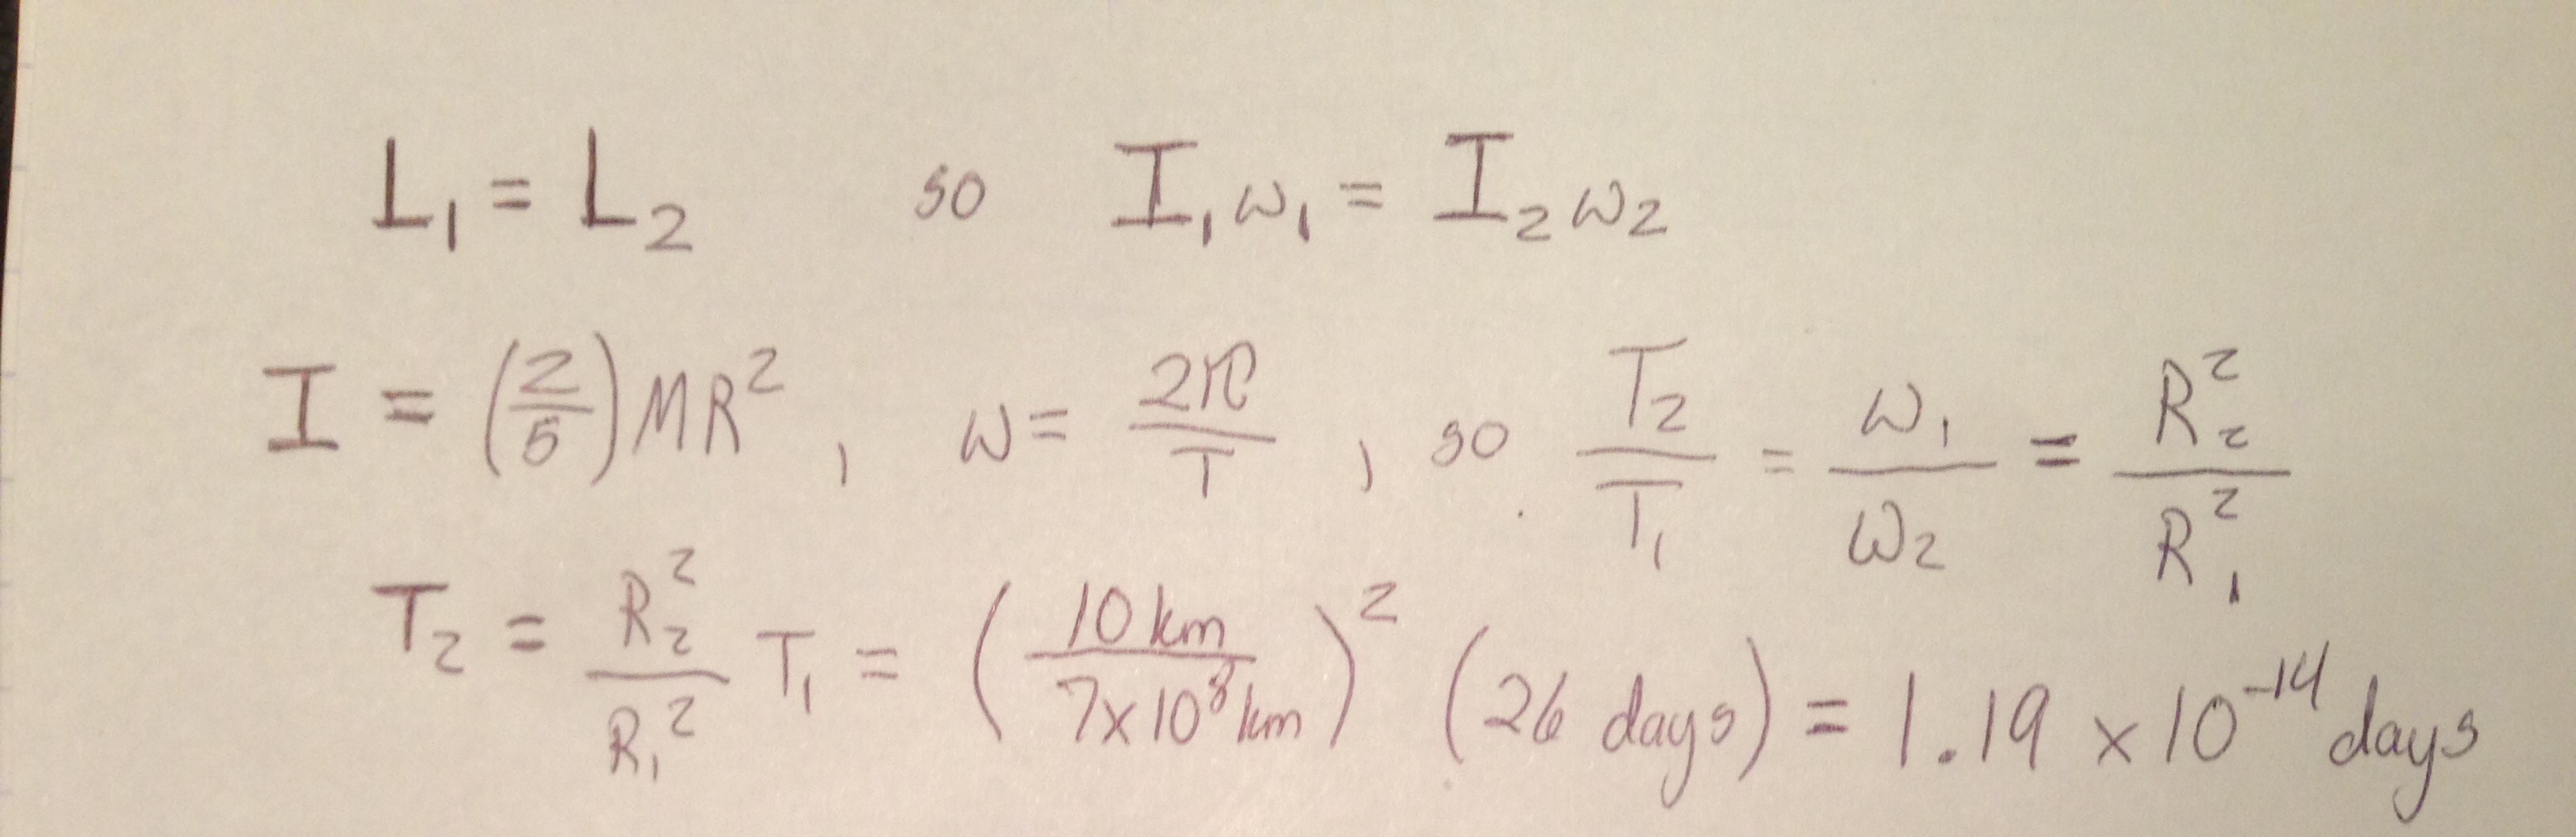 L₁ = L₂ so I₁ω₁ = I₂ω₂
I = (2/5)MR², ω = 2π/T, so T₂/T₁ = ω₁/ω₂ = R₂²/R₁²
T₂ = R₂²/R₁² T₁ = (10 km/7×10⁸ km)² (26 days) = 1.19 × 10⁻¹⁴ days